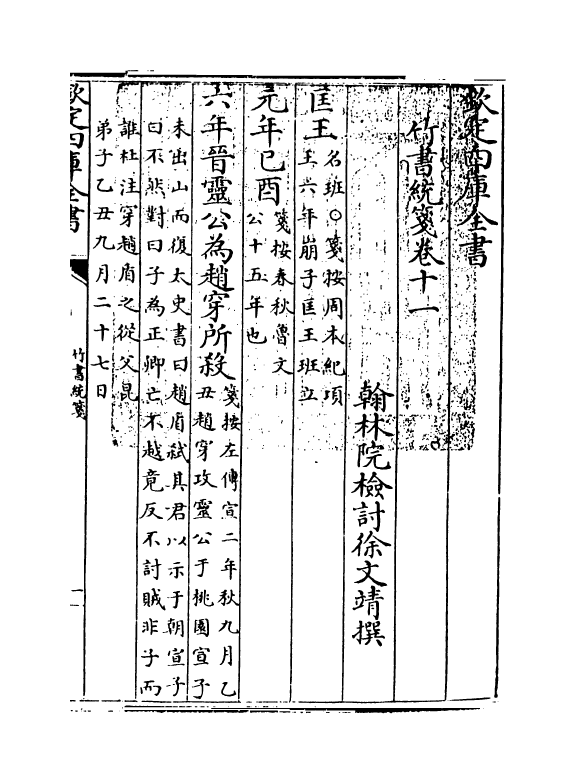 欽定四庫全書
竹書統箋卷十一
翰林院檢討徐文靖撰
匡王
名班○箋按周本紀項
王六年崩子匡王班立
元年己酉
箋按春秋魯文
公十五年也
六年晉靈公為趙穿所殺
箋按左傳宣二年秋九月乙
丑趙穿攻靈公于桃園宣子
未出山而復太史書曰趙盾弒其君以示于朝宣子
曰不然對曰子為正卿亡不越竟反不討賊非子而
誰杜注穿趙盾之從父昆
弟子乙丑九月二十七日
欽定四庫全書
竹書統箋
一